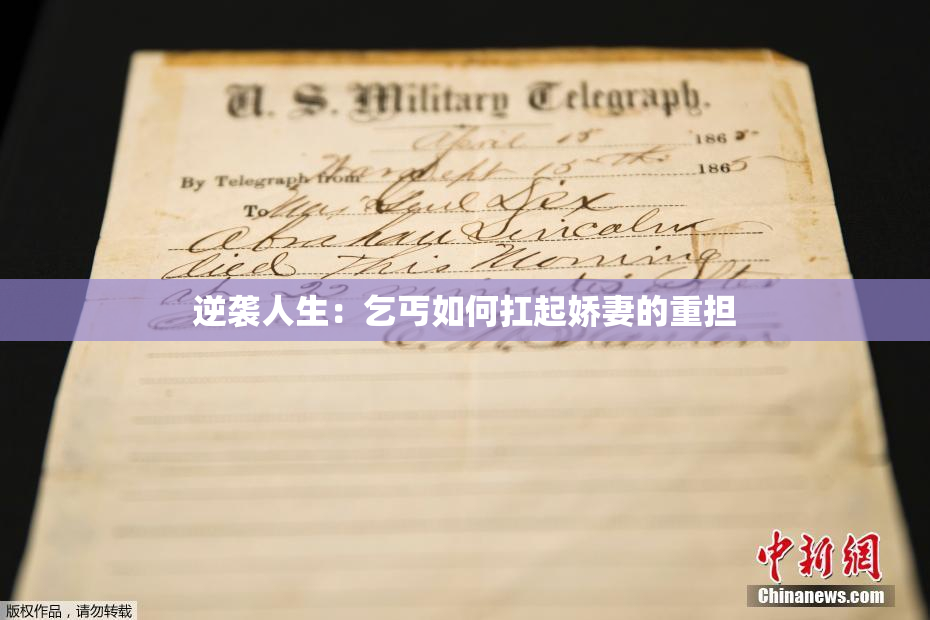 U. S. Military Telegraph.
April 15 1865
By Telegraph from War Dept 15th 1865
To Maj Genl Dix
Abraham Lincoln
died This Morning
at 22 minutes after
逆袭人生：乞丐如何扛起娇妻的重担
E. M. Stanton
中新网
Chinanews.com
版权作品，请勿转载